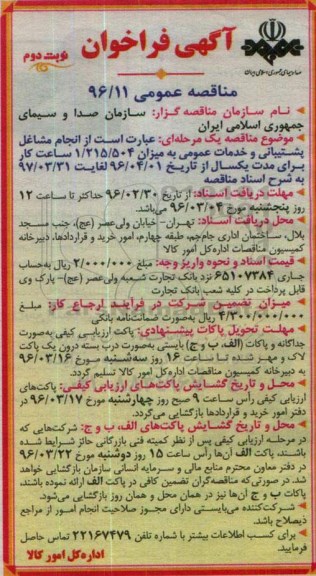 آگهی فراخوان
نوبت دوم
صدا و سیمای جمهوری اسلامی ایران
مناقصه عمومی ۹۶/۱۱
♦ نام سازمان مناقصه گزار: سازمان صدا و سیمای
جمهوری اسلامی ایران
♦ موضوع مناقصه یک مرحله‌ای: عبارت است از انجام مشاغل
پشتیبانی و خدمات عمومی به میزان ۱/۲۱۵/۵۰۴ ساعت کار
برای مدت یکسال از تاریخ ۹۶/۰۴/۰۱ لغایت ۹۷/۰۳/۳۱
به شرح اسناد مناقصه
♦ مهلت دریافت اسناد: از تاریخ ۹۶/۰۲/۳۰ حداکثر تا ساعت ۱۲
روز پنجشنبه مورخ ۹۶/۰۳/۰۴ می‌باشد.
♦ محل دریافت اسناد: تهران- خیابان ولی‌عصر (عج)، جنب مسجد
بلال، ساختمان اداری جام‌جم، طبقه چهارم، امور خرید و قراردادها، دبیرخانه
کمیسیون مناقصات اداره‌کل امور کالا
♦ قیمت اسناد و نحوه واریز وجه: مبلغ ۲/۰۰۰/۰۰۰ ریال به‌حساب
جاری ۶۵۱۰۷۳۸۴ نزد بانک تجارت شعبه ولی‌عصر (عج)- پارک وی
قابل پرداخت در کلیه شعب بانک تجارت
♦ میزان تضمین شرکت در فرآیند ارجاع کار: مبلغ
۴/۳۰۰/۰۰۰/۰۰۰ ریال به‌صورت ضمانت‌نامه بانکی
♦ مهلت تحویل پاکات پیشنهادی: پاکت ارزیابی کیفی به‌صورت
جداگانه و پاکات (الف، ب و ج) بایستی به‌صورت درب بسته درون یک پاکت
لاک و مهر شده تا ساعت ۱۶ روز سه‌شنبه مورخ ۹۶/۰۳/۱۶
به دبیرخانه کمیسیون مناقصات اداره‌کل امور کالا تسلیم گردد.
♦ محل و تاریخ گشایش پاکت‌های ارزیابی کیفی: پاکت‌های
ارزیابی کیفی رأس ساعت ۹ صبح روز چهارشنبه مورخ ۹۶/۰۳/۱۷ در
دفتر امور خرید و قراردادها بازگشایی می‌گردد.
♦ محل و تاریخ گشایش پاکت‌های الف، ب و ج: شرکت‌هایی که
در مرحله ارزیابی کیفی پس از نظر کمیته فنی بازرگانی حائز شرایط شده
باشند، پاکت الف آن‌ها رأس ساعت ۱۵ روز دوشنبه مورخ ۹۶/۰۳/۲۲
در دفتر معاون محترم منابع مالی و سرمایه انسانی سازمان بازگشایی خواهد
شد. در صورتی که مناقصه‌گران تضمین کافی در پاکت الف ارائه نموده باشند،
پاکات ب و ج آن‌ها نیز در همان محل و همان روز بازگشایی می‌شود.
♦ شرکت‌کننده می‌بایستی دارای مجوز صلاحیت انجام امور از مراجع
ذیصلاح باشد.
♦ برای کسب اطلاعات بیشتر با شماره تلفن ۲۲۱۶۷۴۷۹ تماس حاصل
فرمایید.
اداره‌کل امور کالا